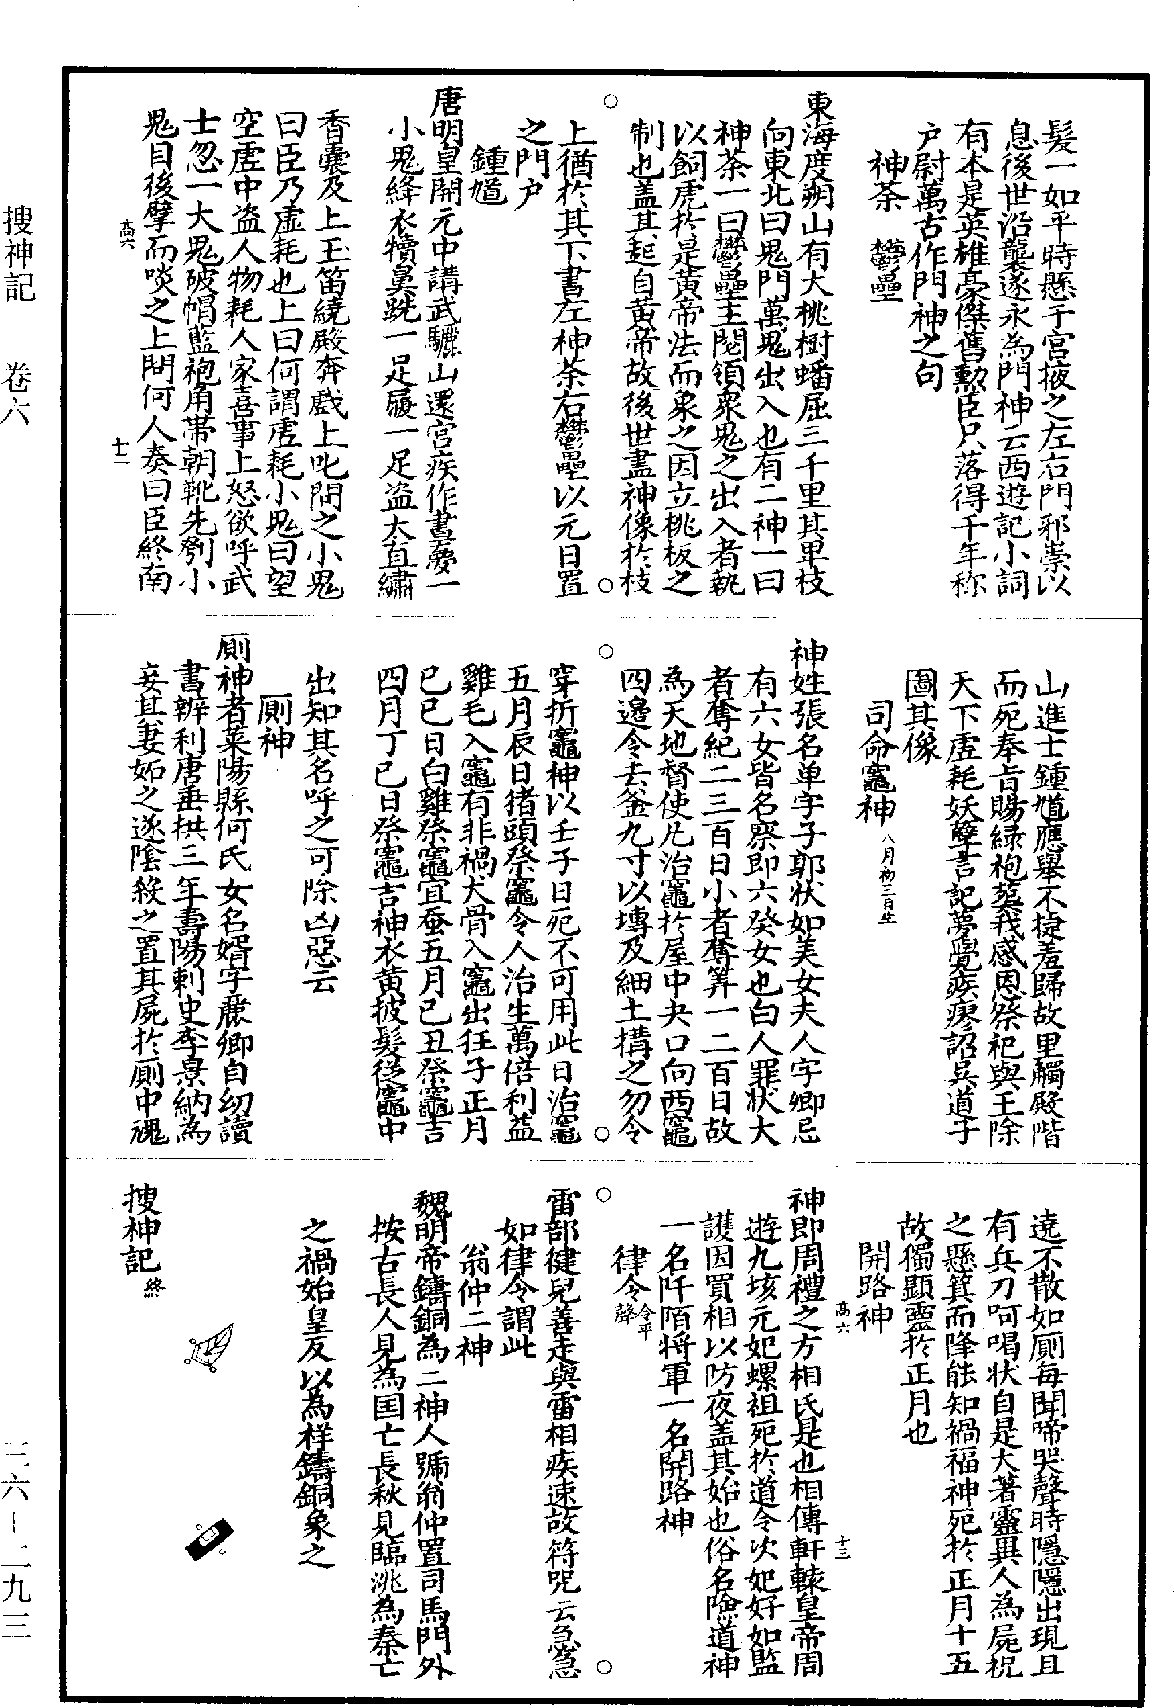 搜神記　卷六
髮一如平時懸于宮掖之左右門邪祟以
息後世治襲遂永為門神云西遊記小詞
有本是英雄豪傑舊勳臣只落得千年称
户尉萬古作門神之句
神荼　鬱壘
東海度朔山有大桃樹蟠屈三千里其卑枝
向東北曰鬼門萬鬼出入也有二神一曰
神荼一曰鬱壘主閱領衆鬼之出入者執
以飼虎於是黃帝法而象之因立桃板之
制也盖其起自黃帝故後世畫神像於板
上猶於其下書左神荼右鬱壘以元日置
之門户
鍾馗
唐明皇開元中講武驪山還宮疾作晝夢一
小鬼絳衣犢鼻跣一足履一足盜太眞繡
香囊及上玉笛繞殿奔戲上叱問之小鬼
曰臣乃虛耗也上曰何謂虛耗小鬼曰望
空虛中盜人物耗人家喜事上怒欲呼武
士忽一大鬼破帽藍袍角帶朝靴先刳小
鬼目後擘而啖之上問何人奏曰臣終南
高六
十一
山進士鍾馗應舉不捷羞歸故里觸殿階
而死奉旨賜綠袍葬我感恩祭祀與王除
天下虛耗妖孽言記夢覺疾瘳詔吳道子
圖其像
司命竈神 八月初三日生
神姓張名单字子郭狀如美女夫人字卿忌
有六女皆名察即六癸女也白人罪狀大
者奪紀二三百日小者奪筭一二百日故
為天地督使凡治竈於屋中央口向西竈
四邊令去釜九寸以塼及細土搆之勿令
穿折竈神以壬子日死不可用此日治竈
五月辰日猪頭祭竈令人治生萬倍利益
雞毛入竈有非禍犬骨入竈出狂子正月
已巳日白雞祭竈宜蚕五月已丑祭竈吉
四月丁巳日祭竈吉神衣黃披髮從竈中
出知其名呼之可除凶惡云
厠神
厠神者萊陽縣何氏女名媚字麗卿自幼讀
書辨利唐垂拱三年壽陽刺史李景納為
妾其妻妬之遂陰殺之置其屍於厠中魂
遶不散如厠每聞啼哭聲時隱隱出現且
有兵刀呵喝狀自是大著靈異人為屍祝
之懸箕而降能知禍福神死於正月十五
故獨顯靈於正月也
開路神
高六
十三
神即周禮之方相氏是也相傳軒轅皇帝周
遊九垓元妃螺祖死於道令次妃好如監
護因買相以防夜盖其始也俗名險道神
一名阡陌将軍一名開路神
律令 令平聲
雷部健兒善走與雷相疾速故符咒云急急
如律令謂此
翁仲二神
魏明帝鑄銅為二神人號翁仲置司馬門外
按古長人見為国亡長秋見臨洮為秦亡
之禍始皇反以為样鑄銅象之
搜神記 終
三六－二九三